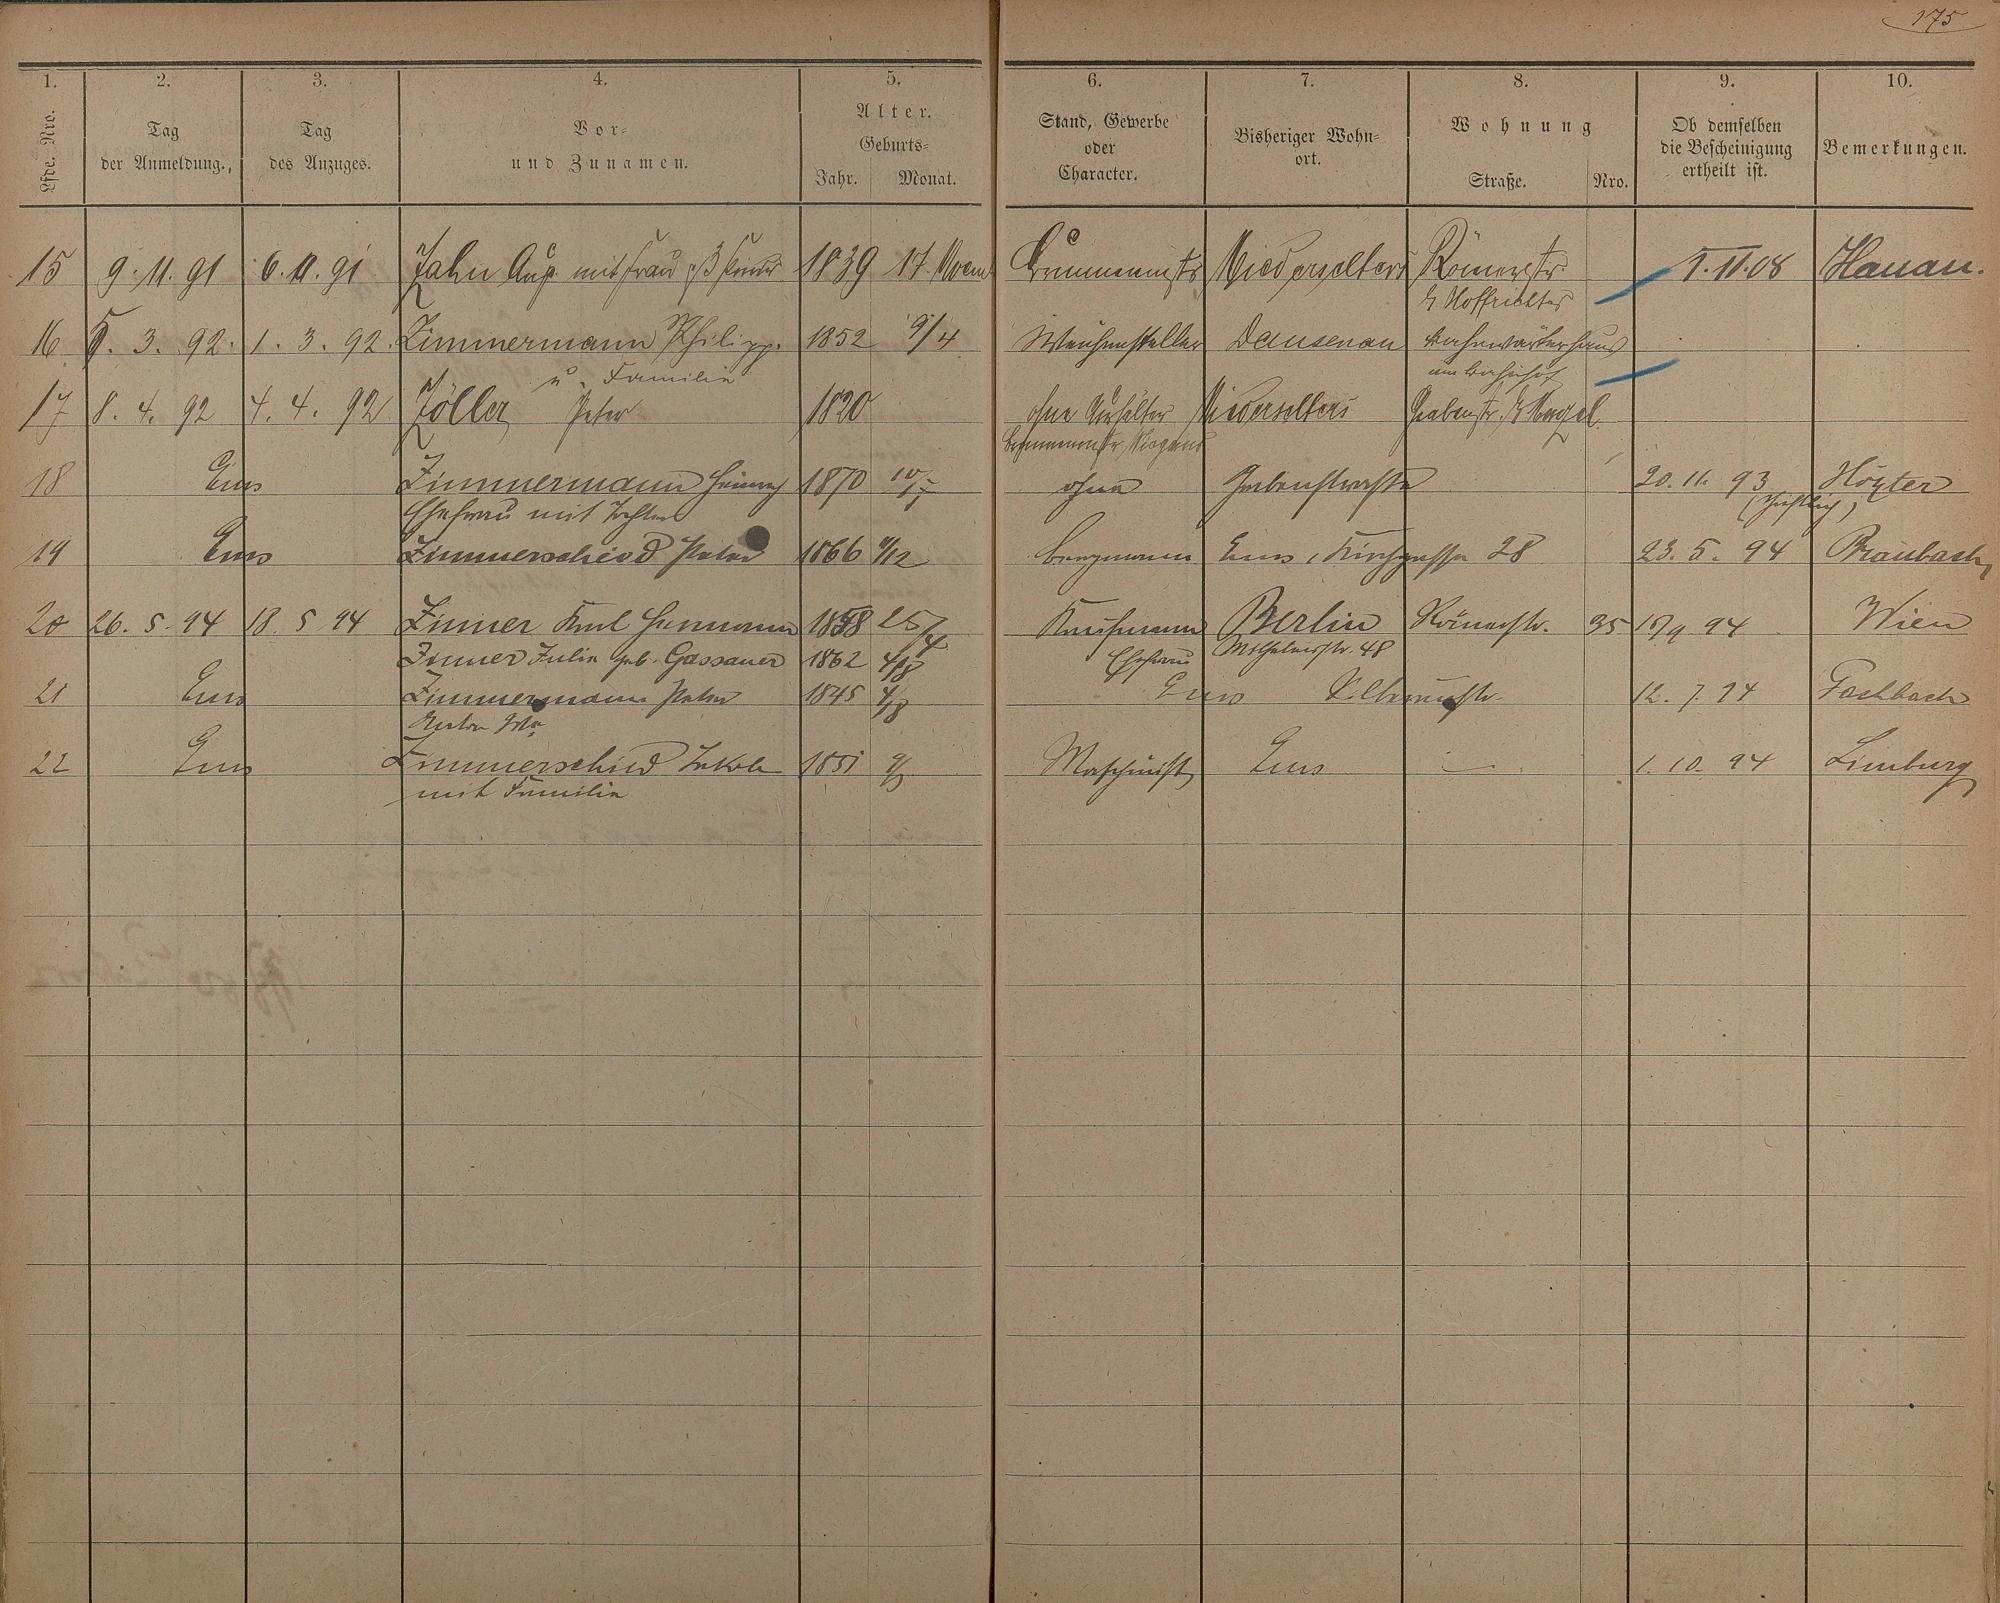 175
1. 2. 3. 4. 5. 6. 7. 8. 9. 10.
Lfde. Nro. Tag der Anmeldung. Tag des Anzuges. Vor- und Zunamen. Alter. Geburts- Jahr. Monat. Stand, Gewerbe oder Character. Bisheriger Wohn- ort. Wohnung Straße. Nro. Ob demselben die Bescheinigung ertheilt ist. Bemerkungen.
15 9. 11. 91 6. 11. 91 Zahn Aug. mit Frau 1839 17. Brunnenmstr Niederselters Römerstr. 1. 11. 08 Hanau.
b/ Hoffrichter
16 5. 3. 92. 1. 3. 92. Zimmermann Philipp. 1852 9/4 Weichensteller Dausenau Bahnwärterhaus
u. Familie am Bahnhof
17 8. 4. 92 4. 4. 92 Zöller Peter 1820 ohne Niederselters Grabenstr.
18 Ems Zimmermann Heinrich 1870 10/7 ohne Grabenstrasse 20. 11. 93 Höxter
Ehefrau mit Tochter
19 Ems Zimmerscheid Peter 1866 /12 Bergmann Ems, Kirchgasse 28 23. 5. 94 Braubach
20 26. 5. 94 18. 5 94 Zinner Karl Hermann 1858 25/4 Kaufmann Berlin Römerstr. 35 94 Wien
Zinner Julie geb. Gassauer 1862 4/8 Ehefrau Wilhelmstr. 48
21 Ems Zimmermann Peter 1845 4/8 Ems Silberaustr. 12. 7. 94 Fachbach
22 Ems Zimmerscheid Jakob 1851 Maschinist Ems — 1. 10. 94 Limburg
mit Familie